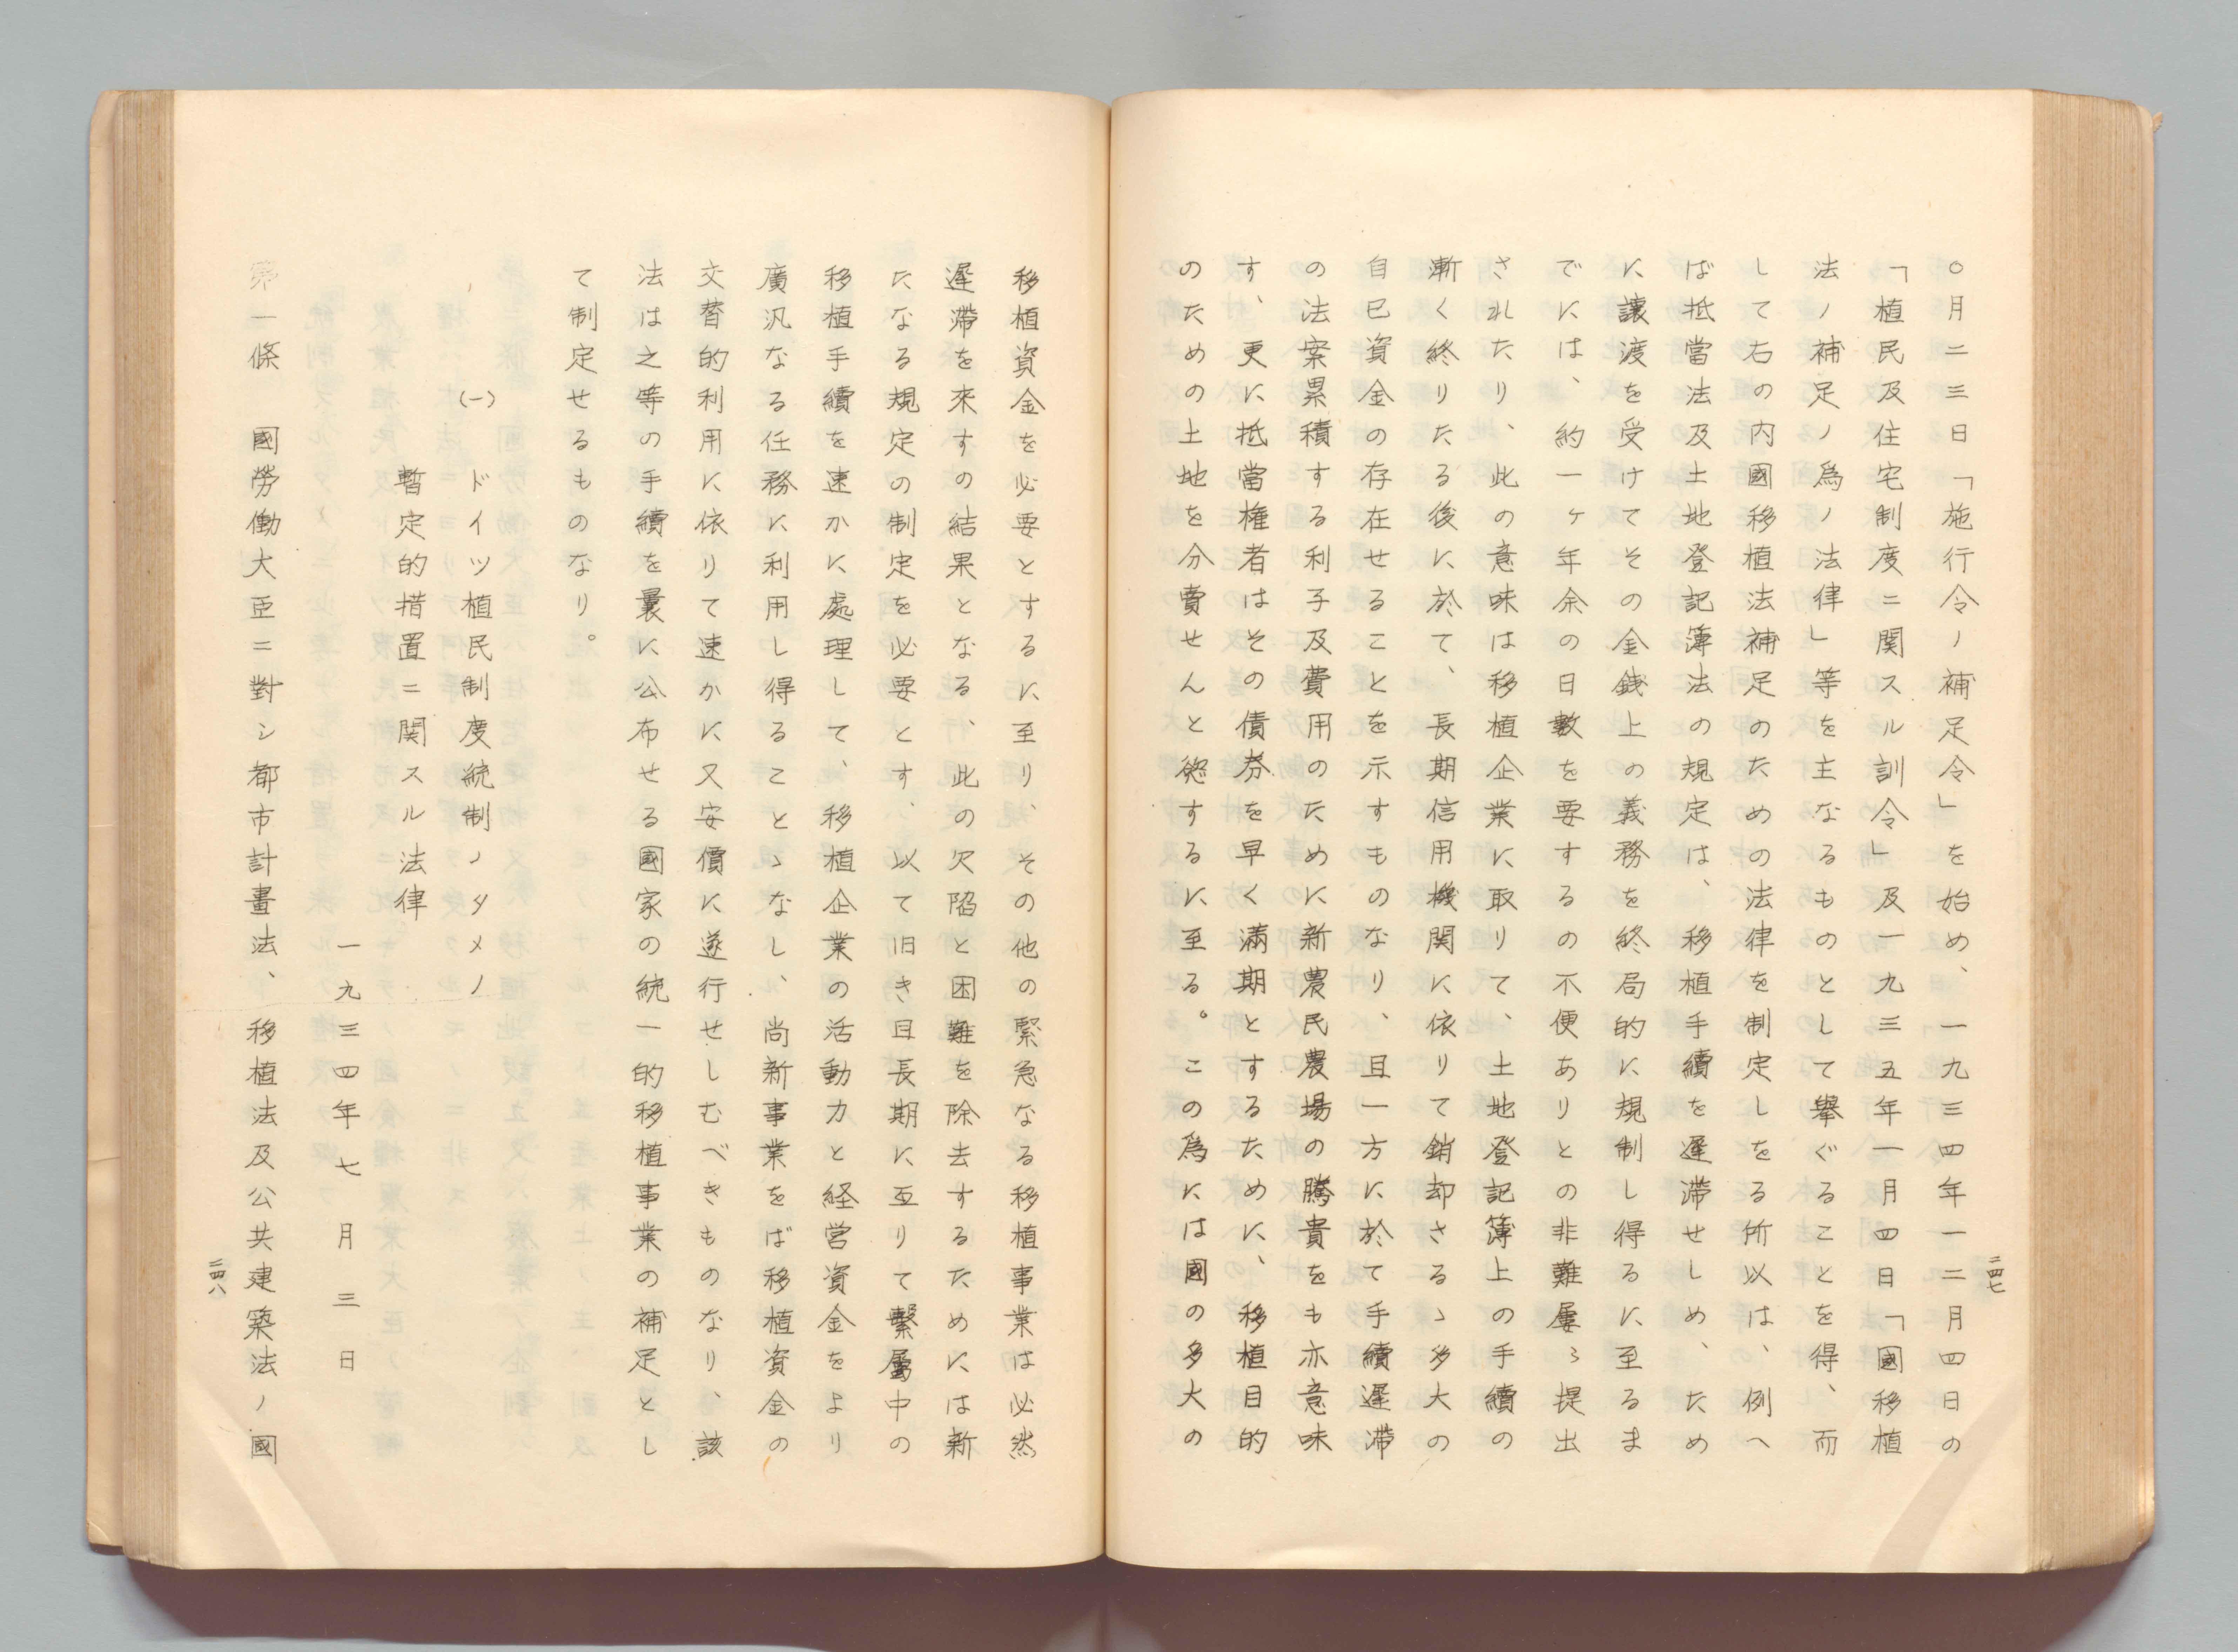 〇月二三日「施行令ノ補足令」を始め、一九三四年一二月四日の
「植民及住宅制度ニ関スル訓令」及一九三五年一月四日「國移植
法ノ補足ノ爲ノ法律」等を主なるものとして擧ぐることを得、而
して右の内國移植法補足のための法律を制定しをる所以は、例へ
ば抵當法及土地登記簿法の規定は、移植手續を遲滯せしめ、ため
に讓渡を受けてその金銭上の義務を終局的に規制し得るに至るま
でには、約一ヶ年余の日數を要するの不便ありとの非難屡〻提出
されたり、此の意味は移植企業に取りて、土地登記簿上の手續の
漸く終りたる後に於て、長期信用機関に依りて銷却さるゝ多大の
自已資金の存在せることを示すものなり、且一方に於て手續遲滯
の法案累積する利子及費用のために新農民農場の騰貴をも亦意味
す、更に抵當権者はその債券を早く滿期とするために、移植目的
のための土地を分賣せんと慾するに至る。この為には國の多大の
二四七
移植資金を必要とするに至り、その他の緊急なる移植事業は必然
遲滯を來すの結果となる、此の欠陷と困難を除去するためには新
たなる規定の制定を必要とす、以て旧き且長期に亙りて繫屬中の
移植手續を速かに處理して、移植企業の活動力と経営資金をより
廣汎なる任務に利用し得ることゝなし、尚新事業をば移植資金の
交替的利用に依りて速かに又安價に遂行せしむべきものなり、該
法は之等の手續を曩に公布せる國家の統一的移植事業の補足とし
て制定せるものなり。
(一)　ドイツ植民制度統制ノタメノ
暫定的措置ニ関スル法律
一九三四年七月三日
第一條　國勞働大臣ニ對シ都市計畫法、移植法及公共建築法ノ國
二四八